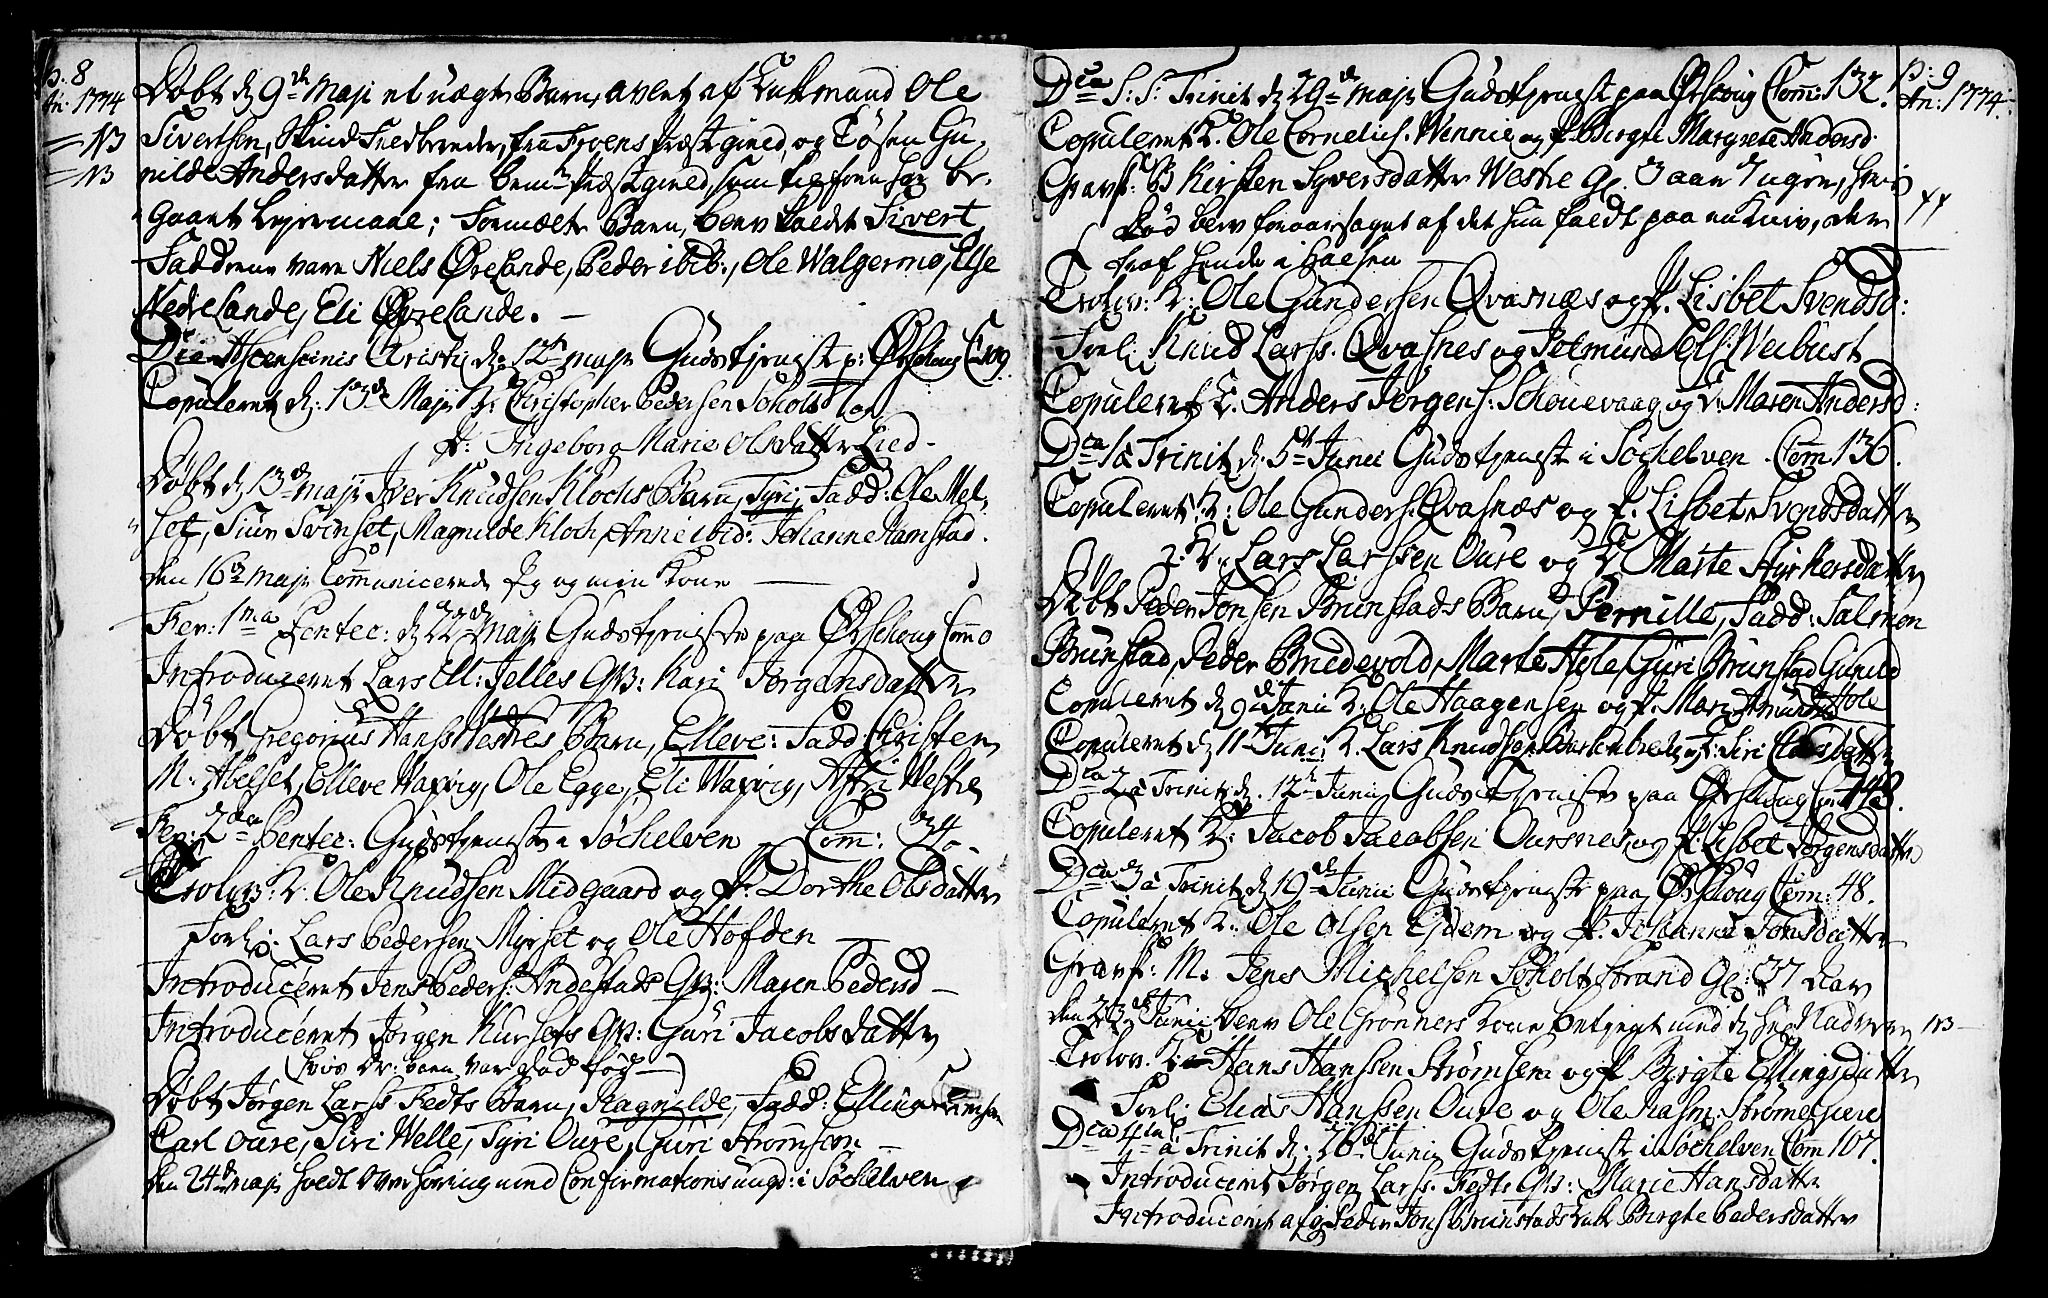 p: 8
An: 1774
NB
NB
Døbt d. 9de Maji et uægte Barn, avlet af Enkemand Ole
Sivertsen, Skind Fredbereder, fra Præstgield, og Tøsen Gu-
nilde Andersdatter fra bemte Præstgield, som tilforn har be-
gaaet Leyermaal; Formælte Barn, blev kaldet Sivert,
Faddrene vare Niels Øvrelande, Peder ibid:, Ole Walgermo, Else
Nedrelande, Eli Øvrelande. -
Die Ascensionis Christi d. 12te Maji Gudstjeneste p: Ørschoug C: 109
Copuleret d: 13de Maji K. Christopher Pedersen Søholt og
P. Ingeborg Marie Olsdatter Lied -
Døbt d. 13de Maji Iver Knudsen Klochs Barn, Syri, Fadd: Ole Mel-
set, Siur Svinset, Magnilde Kloch, Anne ibid: Johanne Hamstad.
den 16de Maji Communicerede jeg og min Kone
Fer: 1ma Pentec: d. 22de Maji Gudstjeneste paa Ørschoug Comm 0
Introduceret Lars Ell: Jelles Qv: Kari Jørgensdatter
Døbt Gregorius Hanss Westres Barn, Elleve: Fadd: Christen
M: Abelset, Elleve Waxvig, Ole Egge, Eli Waxvig, Astri Westre
Fer: 2da Pentec: Gudstjeneste i Søchelven - Com: 340.
Trolov: K. Ole Knudsen Midgaard og P. Dorthe Olsdatter
Forl: Lars Pedersen Myrset og Ole Hofden
Introduceret Jens Peders: Andestads Qv: Maren Pedersd -
Introduceret Jørgen Kursets Qv: Guri Jacobsdatter
hvis Barn var død fød
Døbt Jørgen Larss Fedts Barn, Ragnilde, Fadd: Elling Strømsem
Carl Oure, Siri Welle, Syri Oure, Guri Strømsem -
den 24de Maji holdt Overhøring med Confirmations ungd: i Søchelven
p: 9
An: 1774.
Dca S: S: Trinit d. 29de Maji Gudstjeneste paa Ørskoug Com: 132.
Copuleret K. Ole Cornelius. Wennie og P. Birgte Margrete Andersd.
Gravf: B Kirsten Syversdatter Westre Gl. 3 aar 7 uger, hvis
Død blev foraarsaget af det hun faldt paa en Kniv, der
traf hende i Halsen
Trolov: K: Ole Gundersen Qvasnæs og P. Lisbet Svendsd:
Forl: Knud Larss. Qvasnes og Solmund Els: Weibust
Copuleret K. Anders Jørgens: Schouevaag og P. Maren Andersd:
Dca 1 a Trinit d. 5te Junii Gudstjeneste i Søchelven. Com 136.
Copuleret K: Ole Gunders: Qvasnæs og P. Lisbet Svendsdatter
2. K. Lars Larssen Oure og P. Marte Styrkersdatter
Døbt Peder Jonsen Brunstads Barn, Pernille, Fadd: Salmon
Brunstad, Peder Bredevold, Marte Hole, Guri Brunstad Gunild
Hole
Copuleret d. 9de Junii K. Ole Haagensen og P. Mari Amundsd
Copuleret d. 11te Junii K. Lars Knudsen og P. Siri datter
Dca 2 a Trinit d. 12te Junii Gudstjeneste paa Ørskoug Com 148.
Copuleret K: Jacob Jacobsen Oursnes og P. Lisbet Jørgensdatter
Dca 3 a Trinit d. 19de Junii Gudstjeneste paa Ørskoug Com: 48.
Copuleret K: Ole Olsen Eidem og P. Johanne Jonsdatter
Gravf: M. Jens Michelsen Søholt Strand Gl: 37 Aar
den 23de Junii blev Ole Grønners Kone betjent med d. hel. Nadver NB
Trolov. K. Hans Hanssen Strømsem og P. Birgte Ellingsdatter
Forl: Elias Hanssen Oure og Ole Rasm: Strømesiere
Dca 4 a Trinit d. 26de Junii Gudstjeneste i Søchelven Com 107.
Introduceret Jørgen Larss. Fedts Qv: Marie Hansdatter
Introduceret afg Peder Jons Brunstads Enke Birgte Pedersdatter